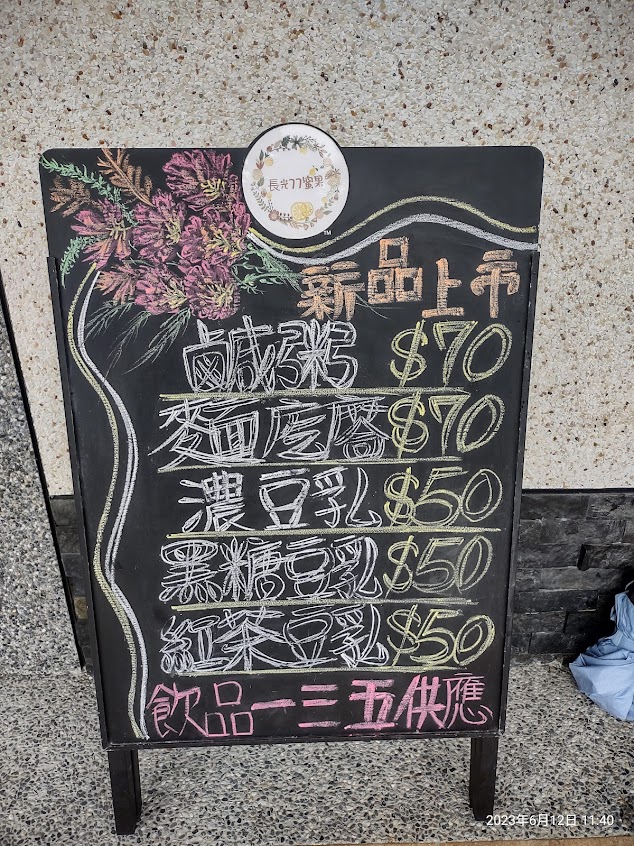 長光77蜜果
TM
新品上市
鹹粥 $70
麵疙瘩 $70
濃豆乳 $50
黑糖豆乳 $50
紅茶豆乳 $50
飲品一三五供應
2023年6月12日 11:40